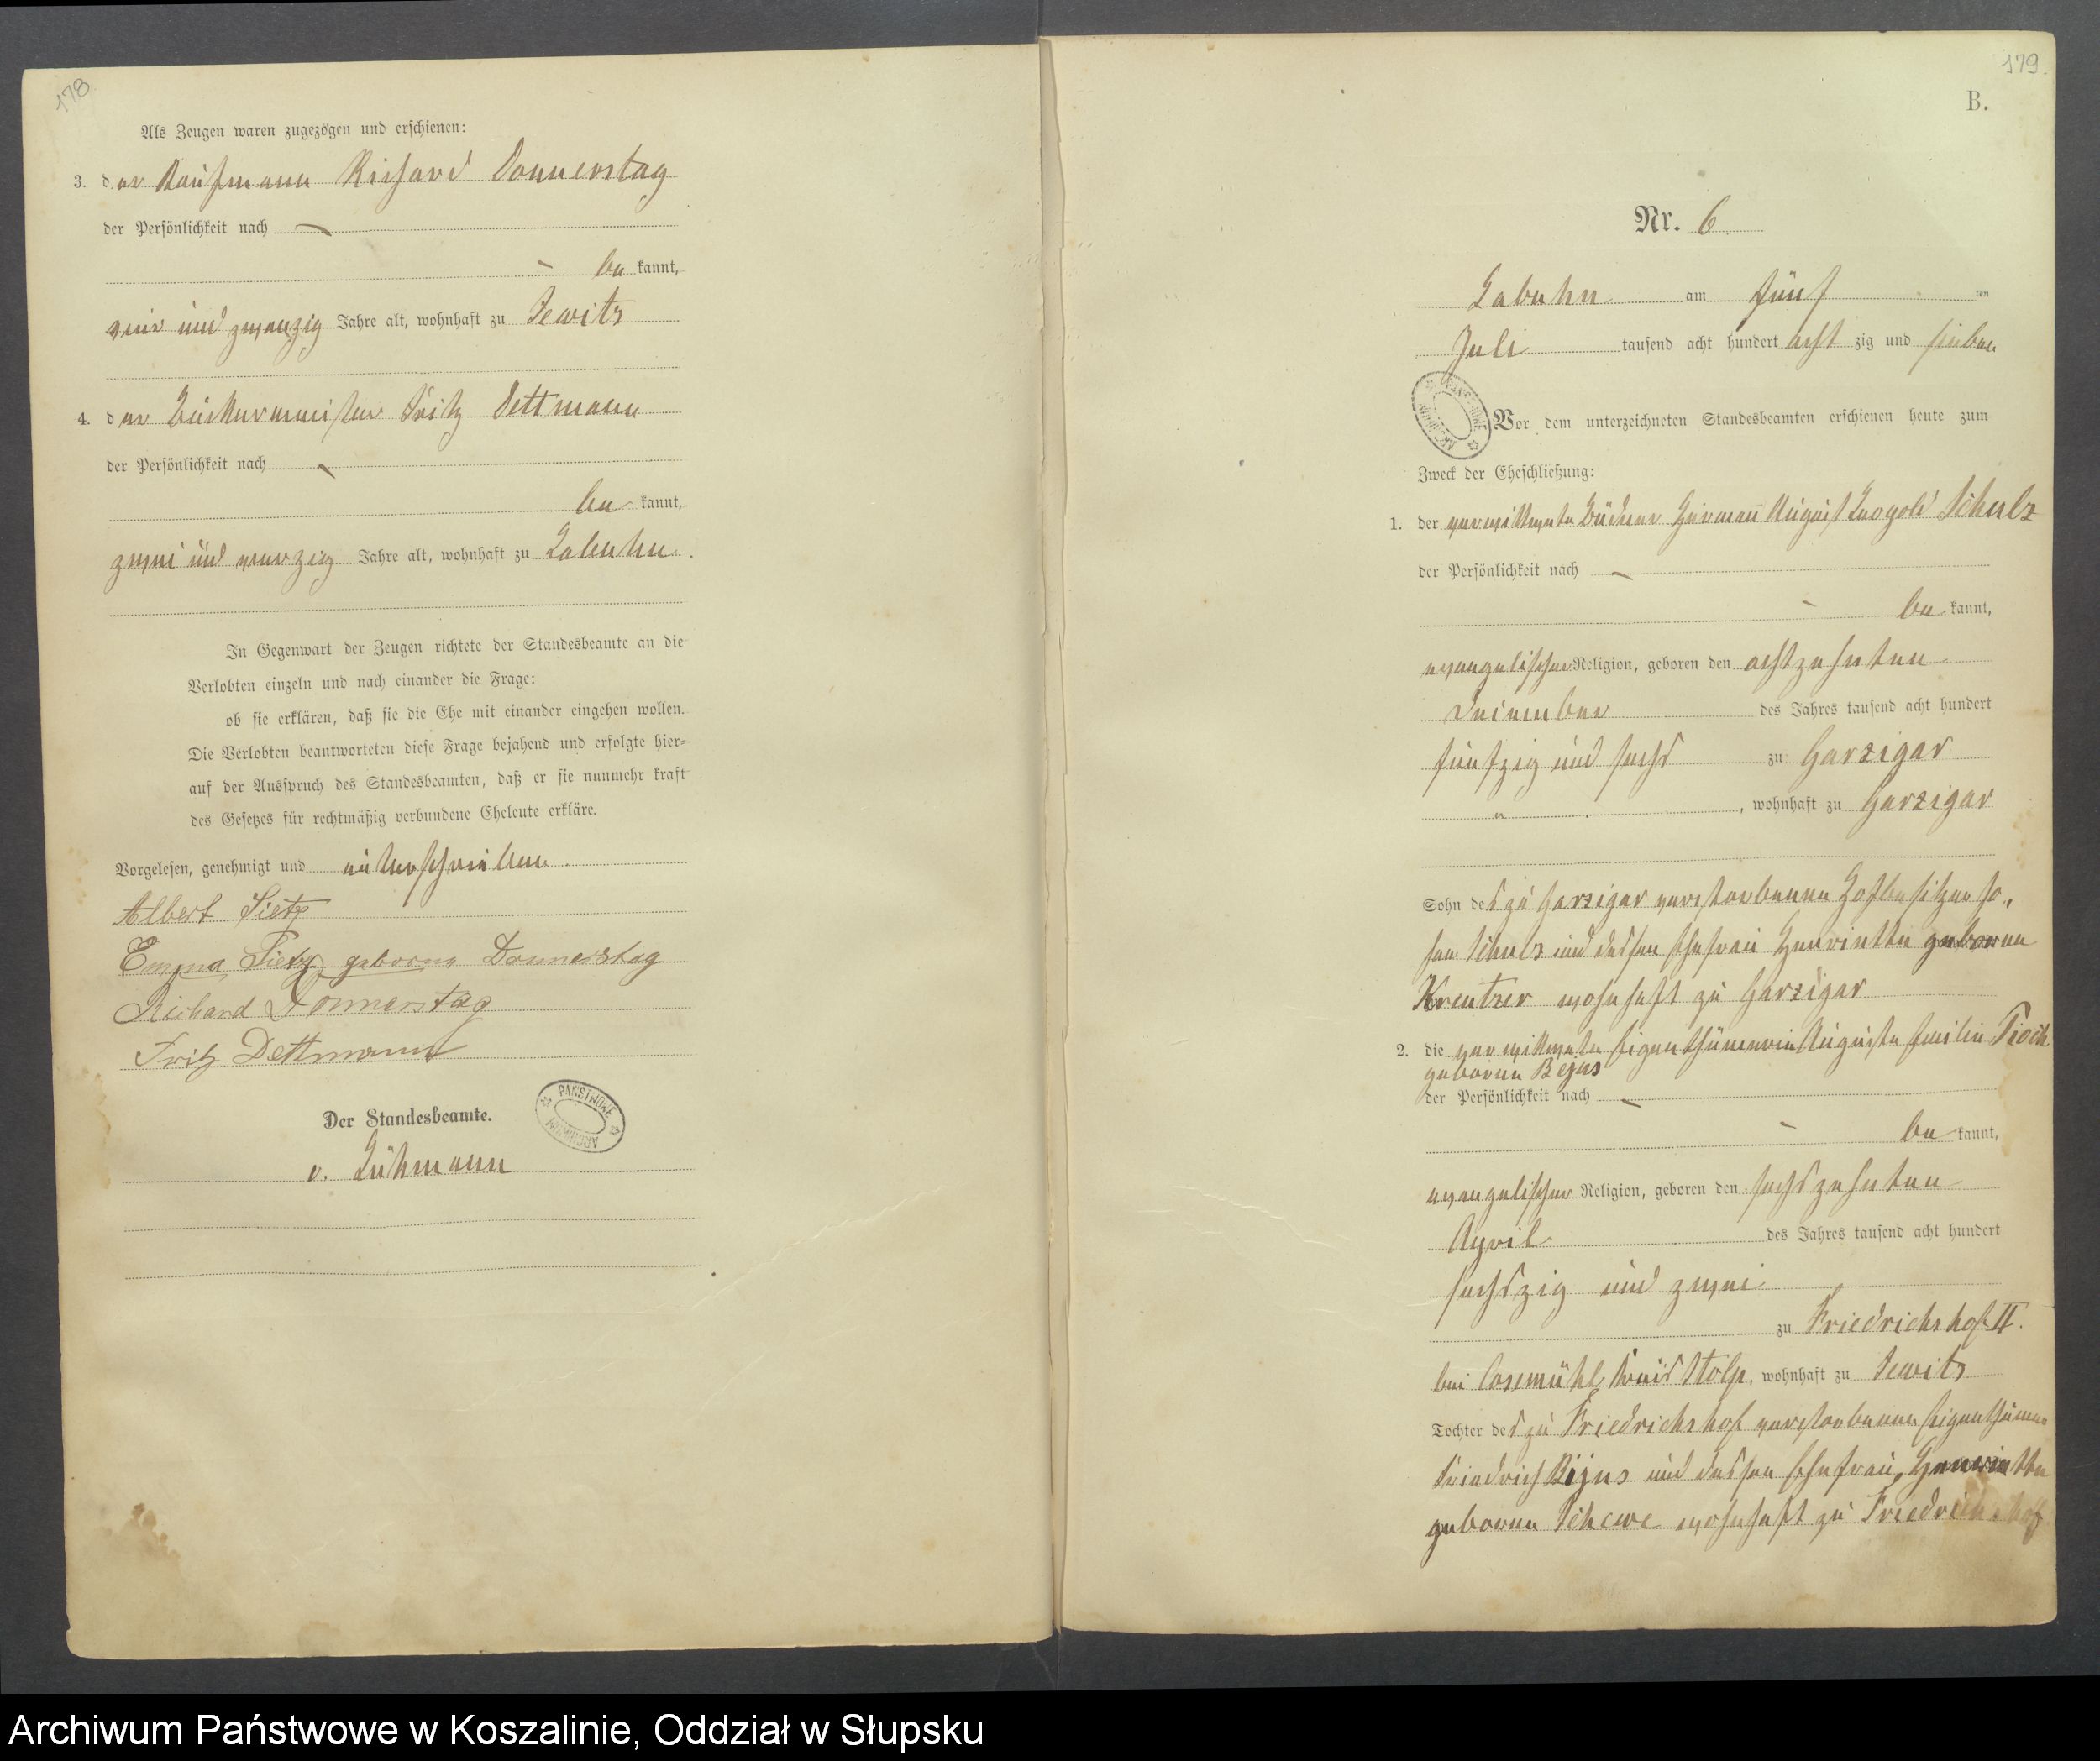 178
Als Zeugen waren zugezogen und erschienen:
3. der Kaufmann Richard Donnerstag
der Persönlichkeit nach —
- be kannt,
ein und zwanzig Jahre alt, wohnhaft zu Jewitz
4. der Bäckermeister Fritz Dettmann
der Persönlichkeit nach —
be kannt,
zwei und vierzig Jahre alt, wohnhaft zu Labuhn.
In Gegenwart der Zeugen richtete der Standesbeamte an die
Verlobten einzeln und nach einander die Frage:
ob sie erklären, daß sie die Ehe mit einander eingehen wollen.
Die Verlobten beantworteten diese Frage bejahend und erfolgte hier-
auf der Ausspruch des Standesbeamten, daß er sie nunmehr kraft
des Gesetzes für rechtmäßig verbundene Eheleute erkläre.
Vorgelesen, genehmigt und unterschrieben.
Albert Tietz
Emma Tietz geborene Donnerstag
Richard Donnerstag
Fritz Dettmann
Der Standesbeamte.
PAŃSTWOWE ARCHIWUM
v. Lühmann
179.
B.
Nr. 6
Labuhn am fünf ten
Juli tausend acht hundert acht zig und sieben
Vor dem unterzeichneten Standesbeamten erschienen heute zum
Zweck der Eheschließung:
1. der verwittwete Büdner Hermann August Leopold Schulz
der Persönlichkeit nach —
- be kannt,
evangelischer Religion, geboren den achtzehnten
Dezember des Jahres tausend acht hundert
fünfzig und sechs zu Garzigar
, wohnhaft zu Garzigar
Sohn des zu Garzigar verstorbenen Hofbesitzer Jo„
han Schulz und dessen Ehefrau Henriette geborene
Kreutzer wohnhaft zu Garzigar
2. die verwittwete Eigenthümerin Auguste Emilie Pioch
geborene Bejus
der Persönlichkeit nach —
- be kannt,
evangelischer Religion, geboren den sechszehnten
April des Jahres tausend acht hundert
sechszig und zwei
zu Friedrichshof II.
bei Cosemühl, Kreis Stolp, wohnhaft zu Jewitz
Tochter des zu Friedrichshof verstorbenen Eigenthümer
Friedrich Bejus und dessen Ehefrau, Henriette
geborene Schewe wohnhaft zu Friedrichshof
Archiwum Państwowe w Koszalinie, Oddział w Słupsku